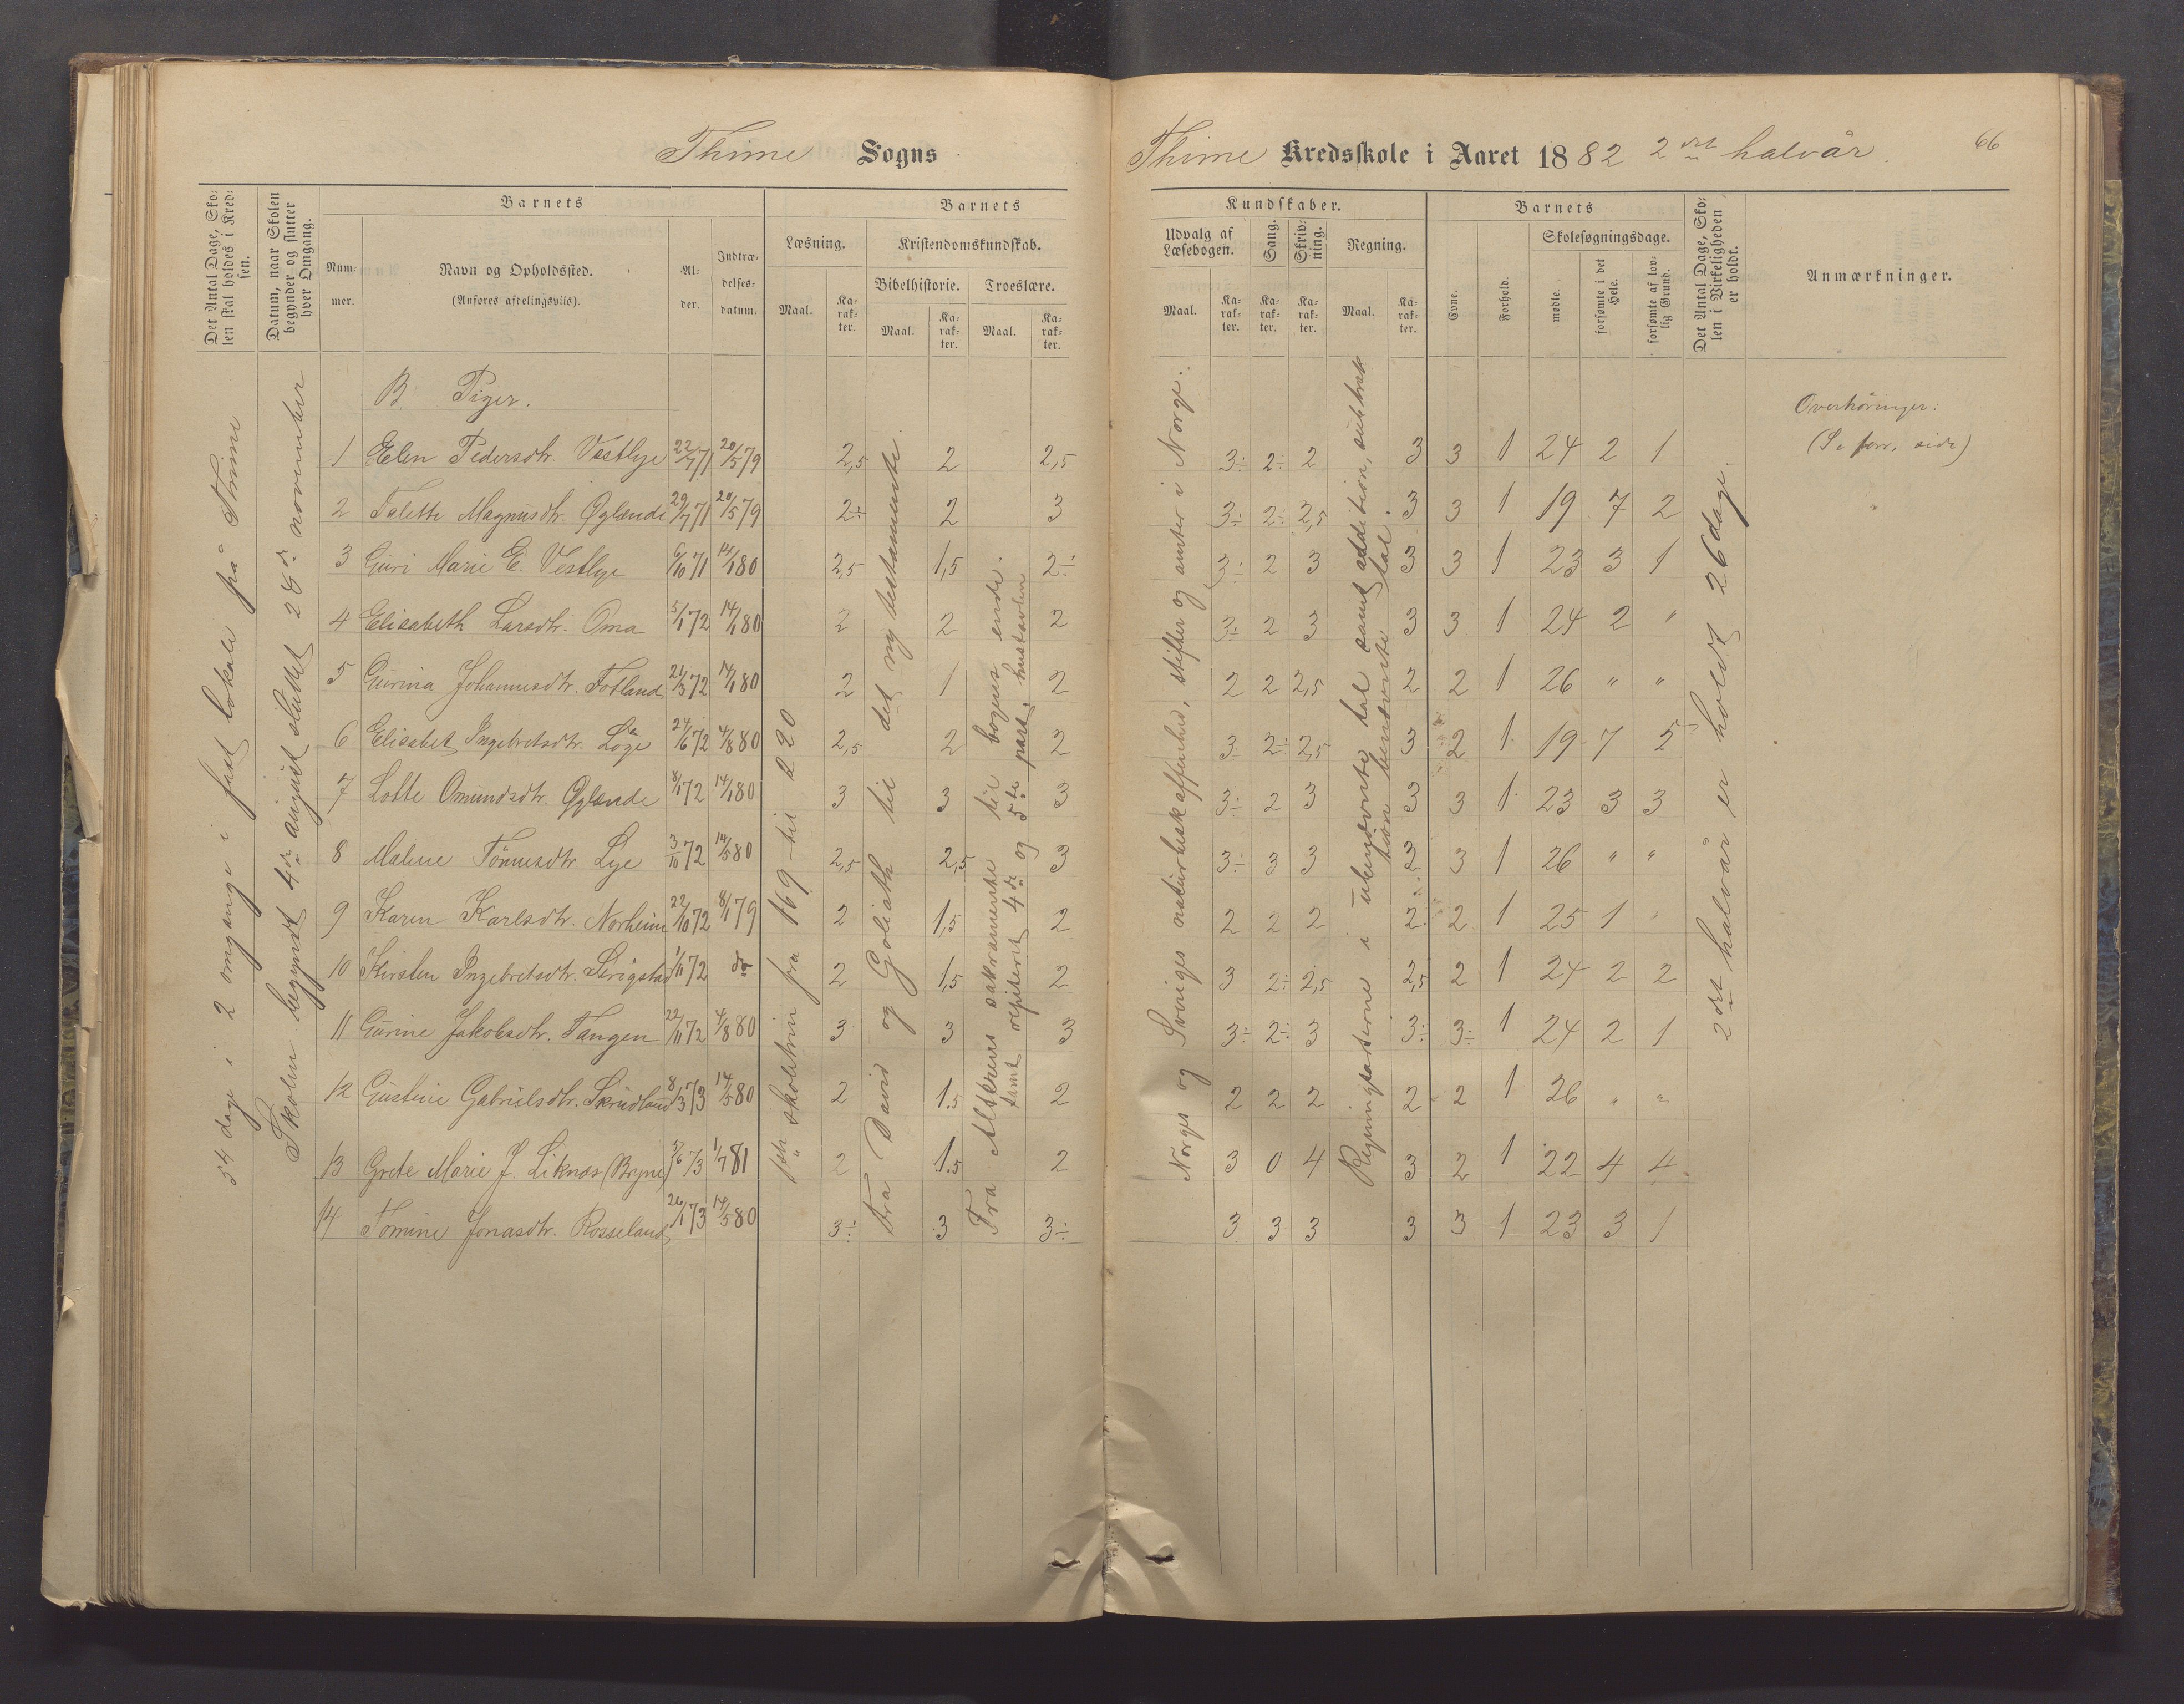 Thime Sogns
Thime Kredsskole i Aaret 1882 2det halvår.
66
Det Antal Dage, Skolen skal holdes i Kredsen.
Datum, naar Skolen begynder og slutter hver Omgang.
Barnets
Nummer.
Navn og Opholdssted.
(Anføres afdelingsviis).
Alder.
Indtrædelsesdatum.
Barnets
Læsning.
Maal.
Karakter.
Kristendomskundskab.
Bibelhistorie.
Maal.
Karakter.
Troeslære.
Maal.
Karakter.
Kundskaber.
Udvalg af Læsebogen.
Maal.
Karakter.
Sang.
Karakter.
Skrivning.
Karakter.
Regning.
Maal.
Karakter.
Barnets
Evne.
Forhold.
Skolesøgningsdage.
mødte.
forsømte i det Hele.
forsømte af lovlig Grund.
Det Antal Dage, Skolen i Virkeligheden er holdt.
Anmærkninger.
54 dage i 2 omgange i fast lokale på Thime
Skolen begyndt 4de august sluttet 28de november
læst skoletrin fra 169 til 220
Fra David og Goliath til det ny testamente.
Fra Alterens sakramente til bogens ende.
samt repiteret 4de og 5te part, hustavlen
Norges og Sveriges naturbeskaffenhed, stifter og amter i Norge.
Regningsarterne i ubenævnte tal samt addition, subtraktion benævnte tal.
2det halvår er holdt 26 dage.
B Piger.
Overhøringer:
(Se forr. side)
1 Elen Pedersdtr. Vestlye 22/7 71 20/5 79 2,5 2 2,5 3÷ 2÷ 2 3 3 1 24 2 1
2 Talette Magnusdtr. Øglænde 29/7 71 20/5 79 2÷ 2 3 3÷ 2÷ 2,5 3 3 1 19 7 2
3 Guri Marie E. Vestlye 6/10 71 14/1 80 2,5 1,5 2÷ 3÷ 2 3 3 3 1 23 3 1
4 Elisabeth Larsdtr. Oma 5/1 72 14/1 80 2 2 2 3÷ 2 3 3 3 1 24 2 "
5 Gurina Johannesdtr. Fotland 21/3 72 14/1 80 2 1 2 2 2 2,5 2 2 1 26 " "
6 Elisabet Ingebretsdtr. Løge 24/6 72 4/8 80 2,5 2 2 3 2÷ 2,5 3 2 1 19 7 5
7 Lotte Omundsdtr. Øglænde 8/1 72 14/1 80 3 3 3 3÷ 2 3 3 3 1 23 3 3
8 Malene Tönnesdtr. Lye 3/10 72 14/5 80 2,5 2,5 3 3÷ 3 3 3 3 1 26 " "
9 Karen Karlsdtr. Norheim 22/10 72 8/1 79 2 1,5 2 2 2 2 2 2 1 25 1 "
10 Kirsten Ingebretsdtr. Serigstad 1/11 72 do 2 1,5 2 3 2÷ 2,5 2,5 2 1 24 2 2
11 Gurine Jakobsdtr. Tangen 22/11 72 4/8 80 3 3 3 3÷ 2÷ 3 3÷ 3÷ 1 24 2 1
12 Gustine Gabrielsdtr. Skrudland 8/3 73 14/5 80 2 1.5 2 2 2 2 2 2 1 26 " "
13 Grete Marie J. Liknæs (Bryne) 5/6 73 1/7 81 2 1.5 2 3 0 4 3 2 1 22 4 4
14 Tomine Jonasdtr. Rosseland 26/1 73 14/5 80 3÷ 3 3÷ 3 3 3 3 3 1 23 3 1